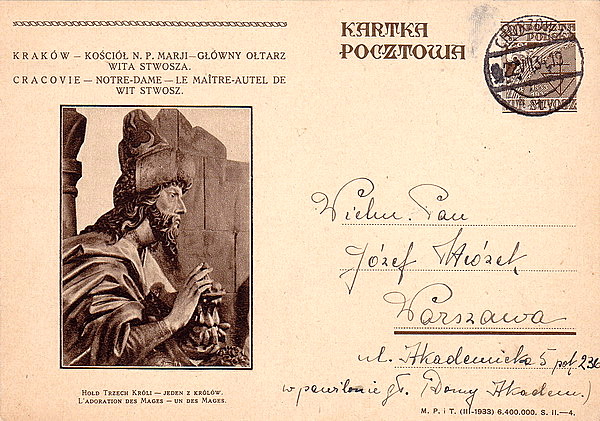 KRAKÓW — KOŚCIÓŁ N. P. MARJI — GŁÓWNY OŁTARZ
WITA STWOSZA.
CRACOVIE — NOTRE-DAME — LE MAÎTRE-AUTEL DE
WIT STWOSZ.
KARTKA
POCZTOWA
HOŁD TRZECH KRÓLI — JEDEN Z KRÓLÓW.
L'ADORATION DES MAGES — UN DES MAGES.
Wielm. Pan
Józef
Warszawa
ul. Akademicka 5 pok. 236
w pawilonie gł. (Domy Akadem.)
M. P. i T. (III-1933) 6.400.000. S. II.—4.